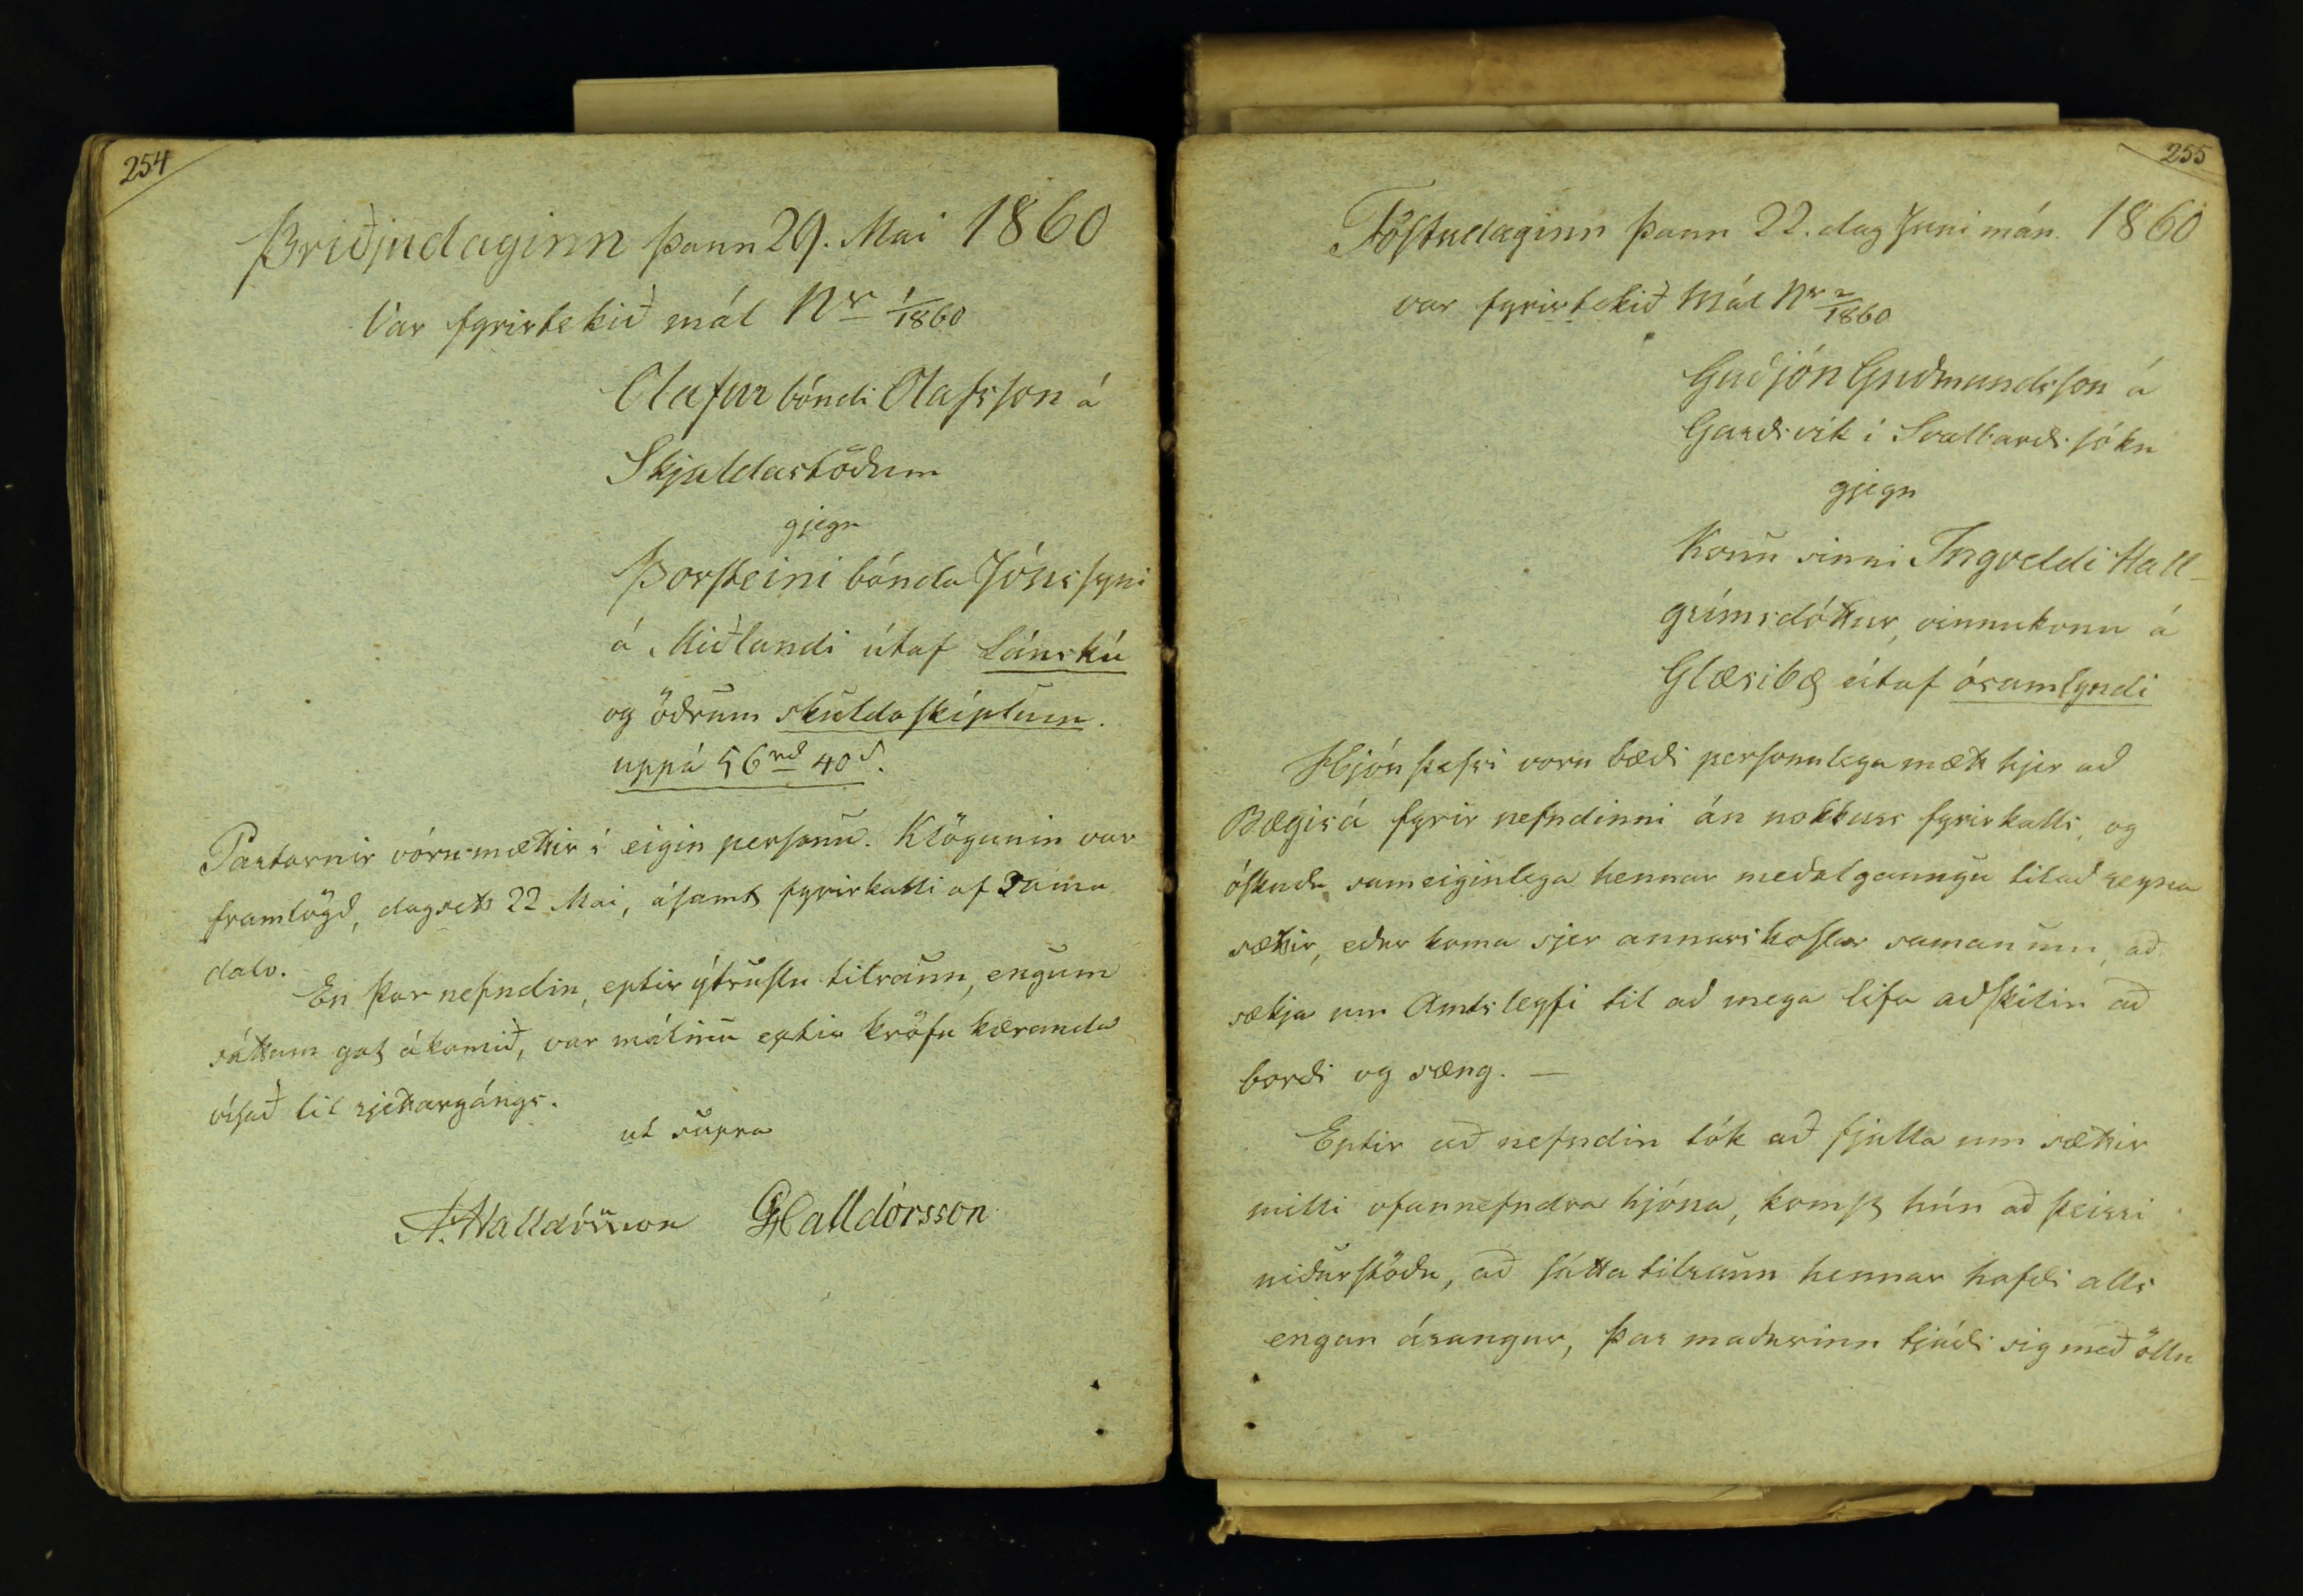 254
Þriðjudaginn þann 29. Mai 1860
Var fyrirtekið mál Nr 1/1860
Olafur bóndi Olafsson á
Skjaldastöðum
gjegn
Þorsteini bónda Jónssyni
á Miðlandi útaf Lánskú
og öðrum skuldaskiptum.
uppá 56rd 40s.
Partarnir vóru mættir í eigin personu. Klögunin var
framlögð, dagsett 22 Mai, ásamt fyrirkalli af sama
dato.
En þar nefndin, eptir ýtrustu tilraun, engum
sáttum gat ákomið, var málinu eptir kröfu kæranda
vísað til rjettargángs.
ut supra
A. Halldórsson GHalldórsson
255
Föstudaginn þann 22. dag Juni mán. 1860
var fyrirtekið Mál Nr 2/1860
Guðjón Guðmundsson á
Garðsvík í Svalbarðssókn
gjegn
Konu sinni Ingveldi Hall-
grímsdóttur, vinnukonu á
Glæsibæ útaf ósamlyndi
Hjón þessi voru bæði personulega mætt hjer að
Bægisá fyrir nefndinni án nokkurs fyrirkalls, og
óskuðu sameiginlega hennar meðalgaungu til að reyna
sættir, eður koma sjer annars kostar saman um, að
sækja um Amtsleyfi til að mega lifa aðskilin að
borði og sæng. —
Eptir að nefndin tók að fjalla um sættir
milli ofannefndra hjóna, komst hún að þeirri
niðurstöðu, að sáttatilraun hennar hafði alls
engan árangur, þar maðurinn tjáði sig með öllu